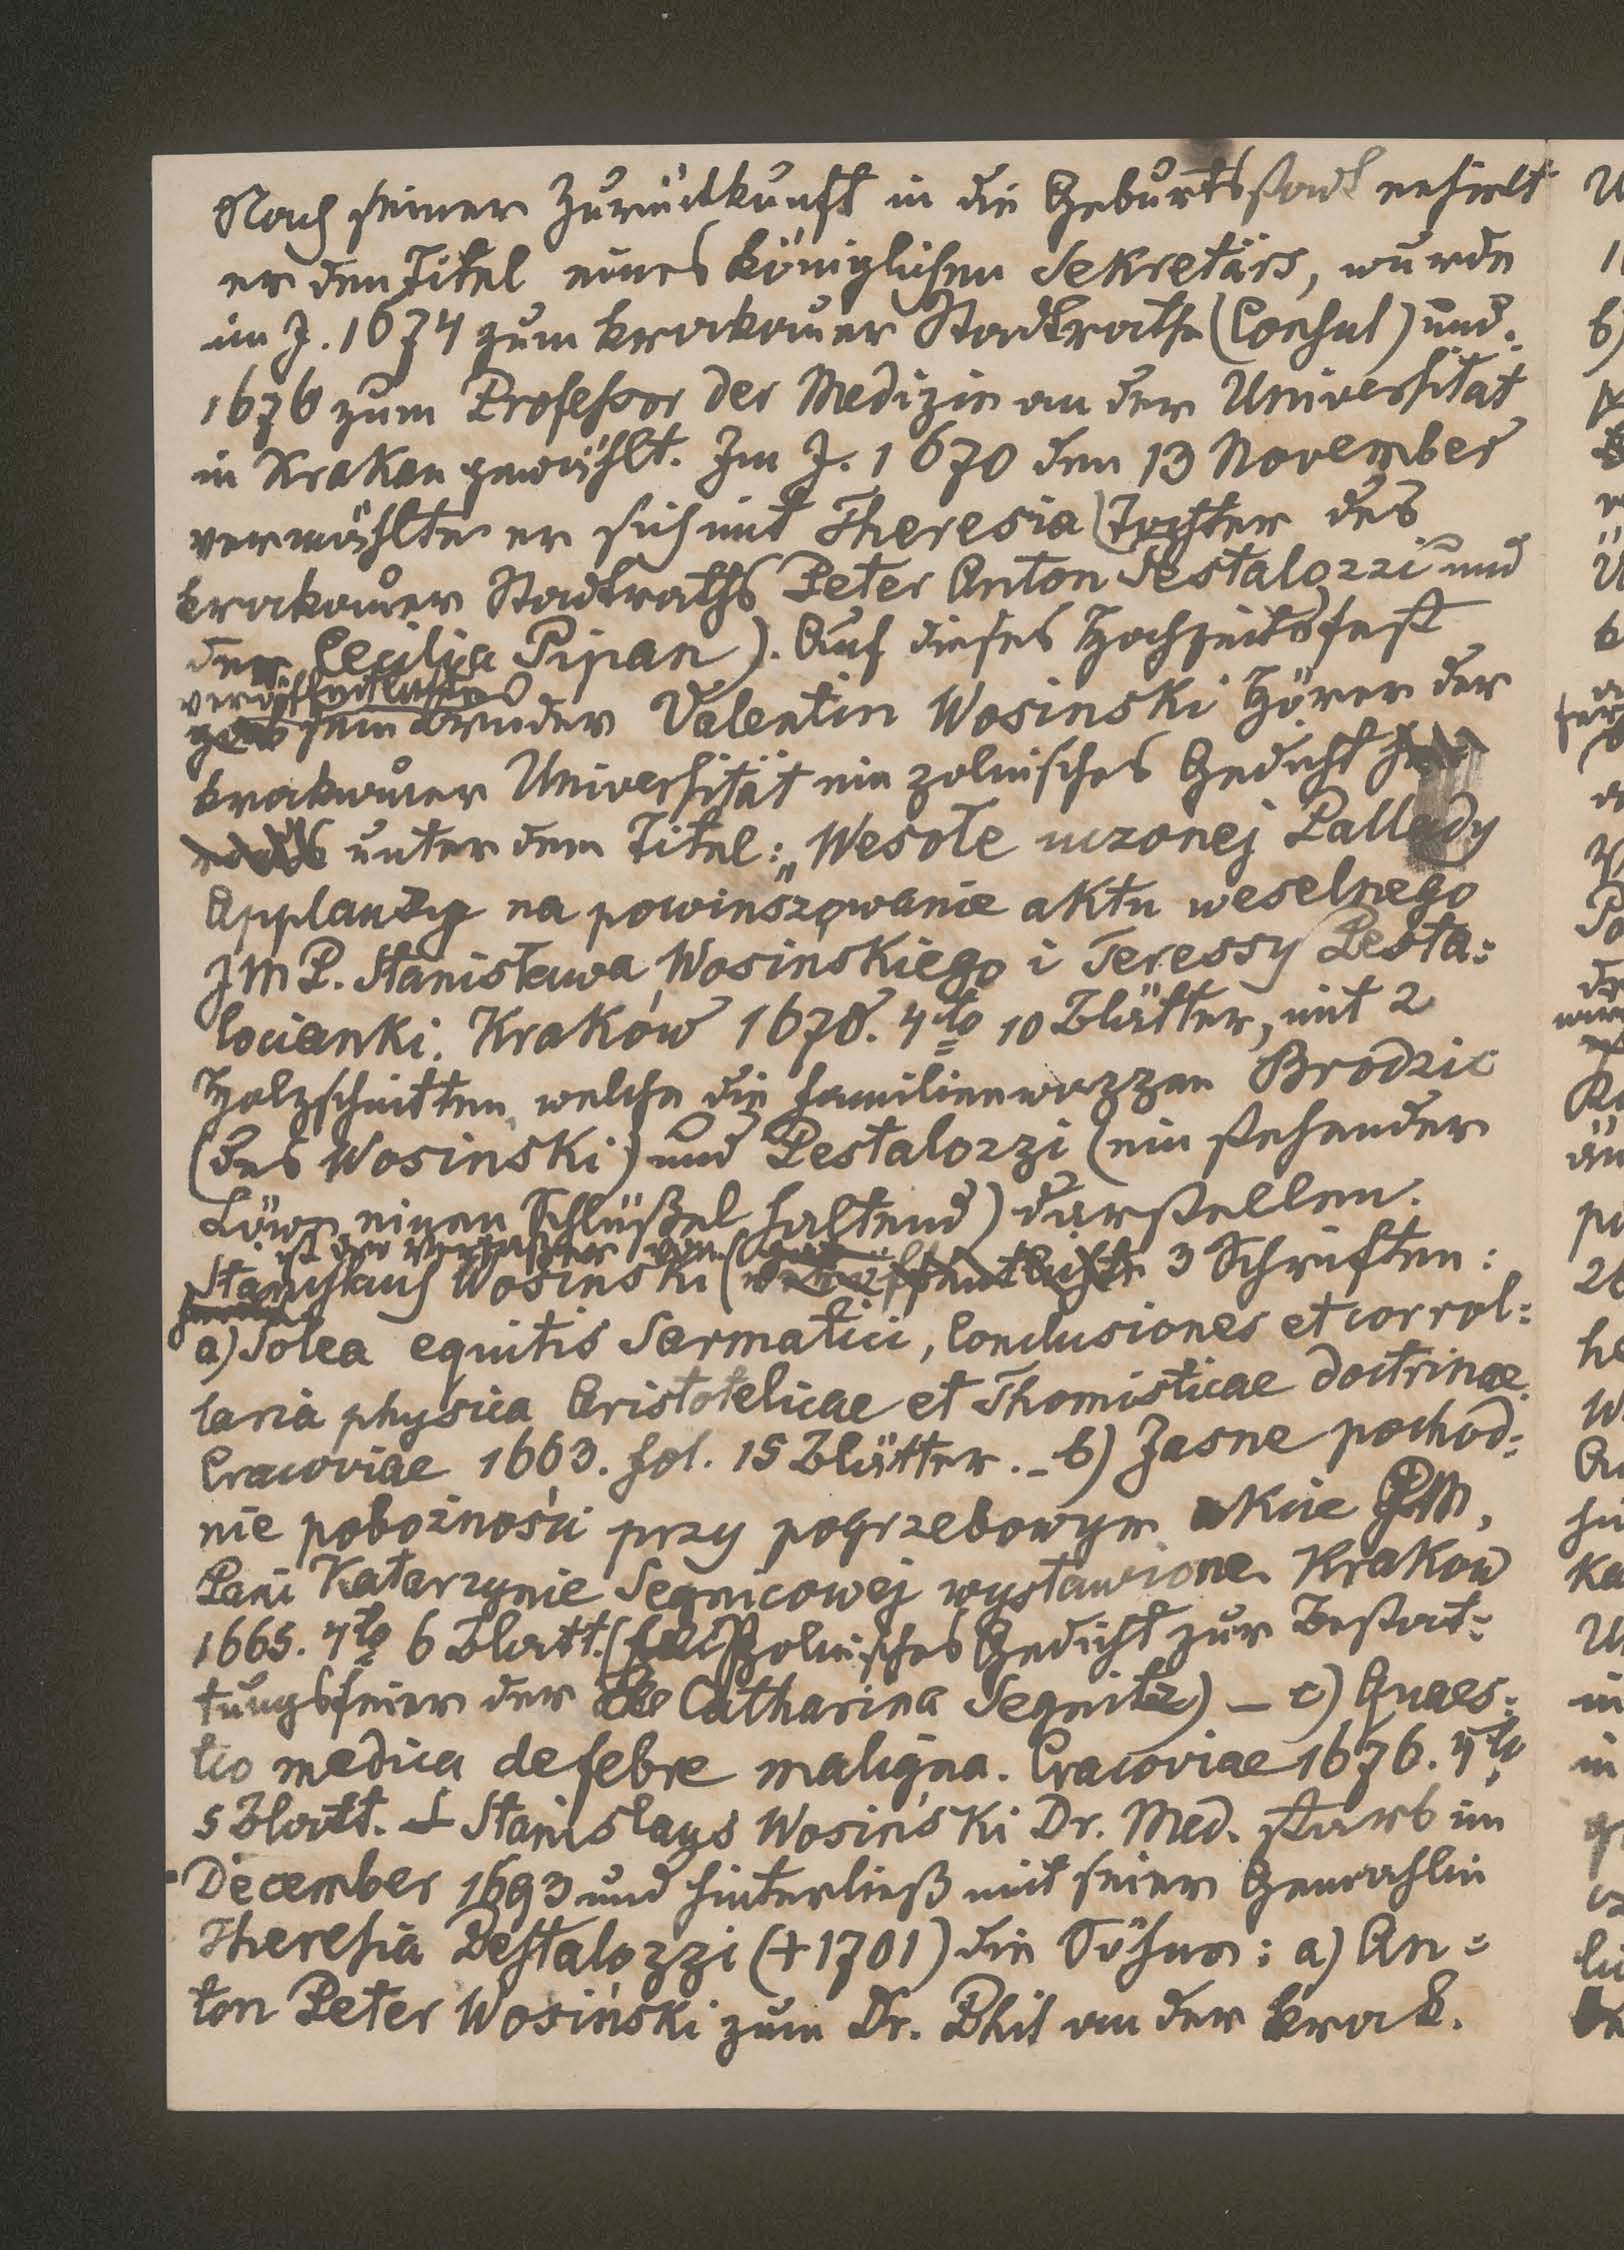 Nach seiner Zurückkunft in die Geburtsstadt erhielt
er den Titel eines königlichen Sekretärs, wurde
im J. 1674 zum krakauer Stadtrathe (Consul) und
1676 zum Professor der Medizin an der Universität
in Krakau gewählt. Im J. 1670 den 13 November
vermählte er sich mit Theresia (Tochter des
krakauer Stadtraths Peter Anton Pestalozzi und
der Cecilija Pipan). Auf dieses Hochzeitsfest
veröffentlichte
gab sein Bruder Valentin Wosinski Hörer der
krakauer Universität ein polnisches Gedicht
unter dem Titel: „Wesołe uczonej Pallady
Applauzy na powinszowanie aktu weselnego
JMP. Stanisława Wosińskiego i Teressy Pesta=
locianki. Kraków 1678. 4to 10 Blätter, mit 2
Holzschnitten, welche die Familienwappen Brodzic
(des Wosinski) und Pestalozzi (ein stehender
Löwe einen Schlüßel haltend) darstellen.
ist der Verfasser von
Stanislaus Wosinski (veröffentlichte 3 Schriften:
a) Solea equitis Sarmatici, Conclusiones et corrol=
laria physica Aristotelicae et Thomisticae doctrinae.
Cracoviae 1663. fol. 15 Blätter. - b) Jasne pochod=
nie pobożności przy pogrzebowym akcie JM.
Pani Katarzynie Segnicowej wystawione. Krakow
1665. 4to 6 Blatt. (polnisches Gedicht zur Bestat=
tungsfeier der Catharina Segnitz) - c) Quaes=
tio medica de febre maligna. Cracoviae 1676. 4to
5 Blatt. Stanislaus Wosiński Dr. Med. starb im
December 1693 und hinterließ mit seiner Gemahlin
Theresia Pestalozzi (+1701) die Söhne: a) An=
ton Peter Wosiński zum Dr. Phil an der krak.